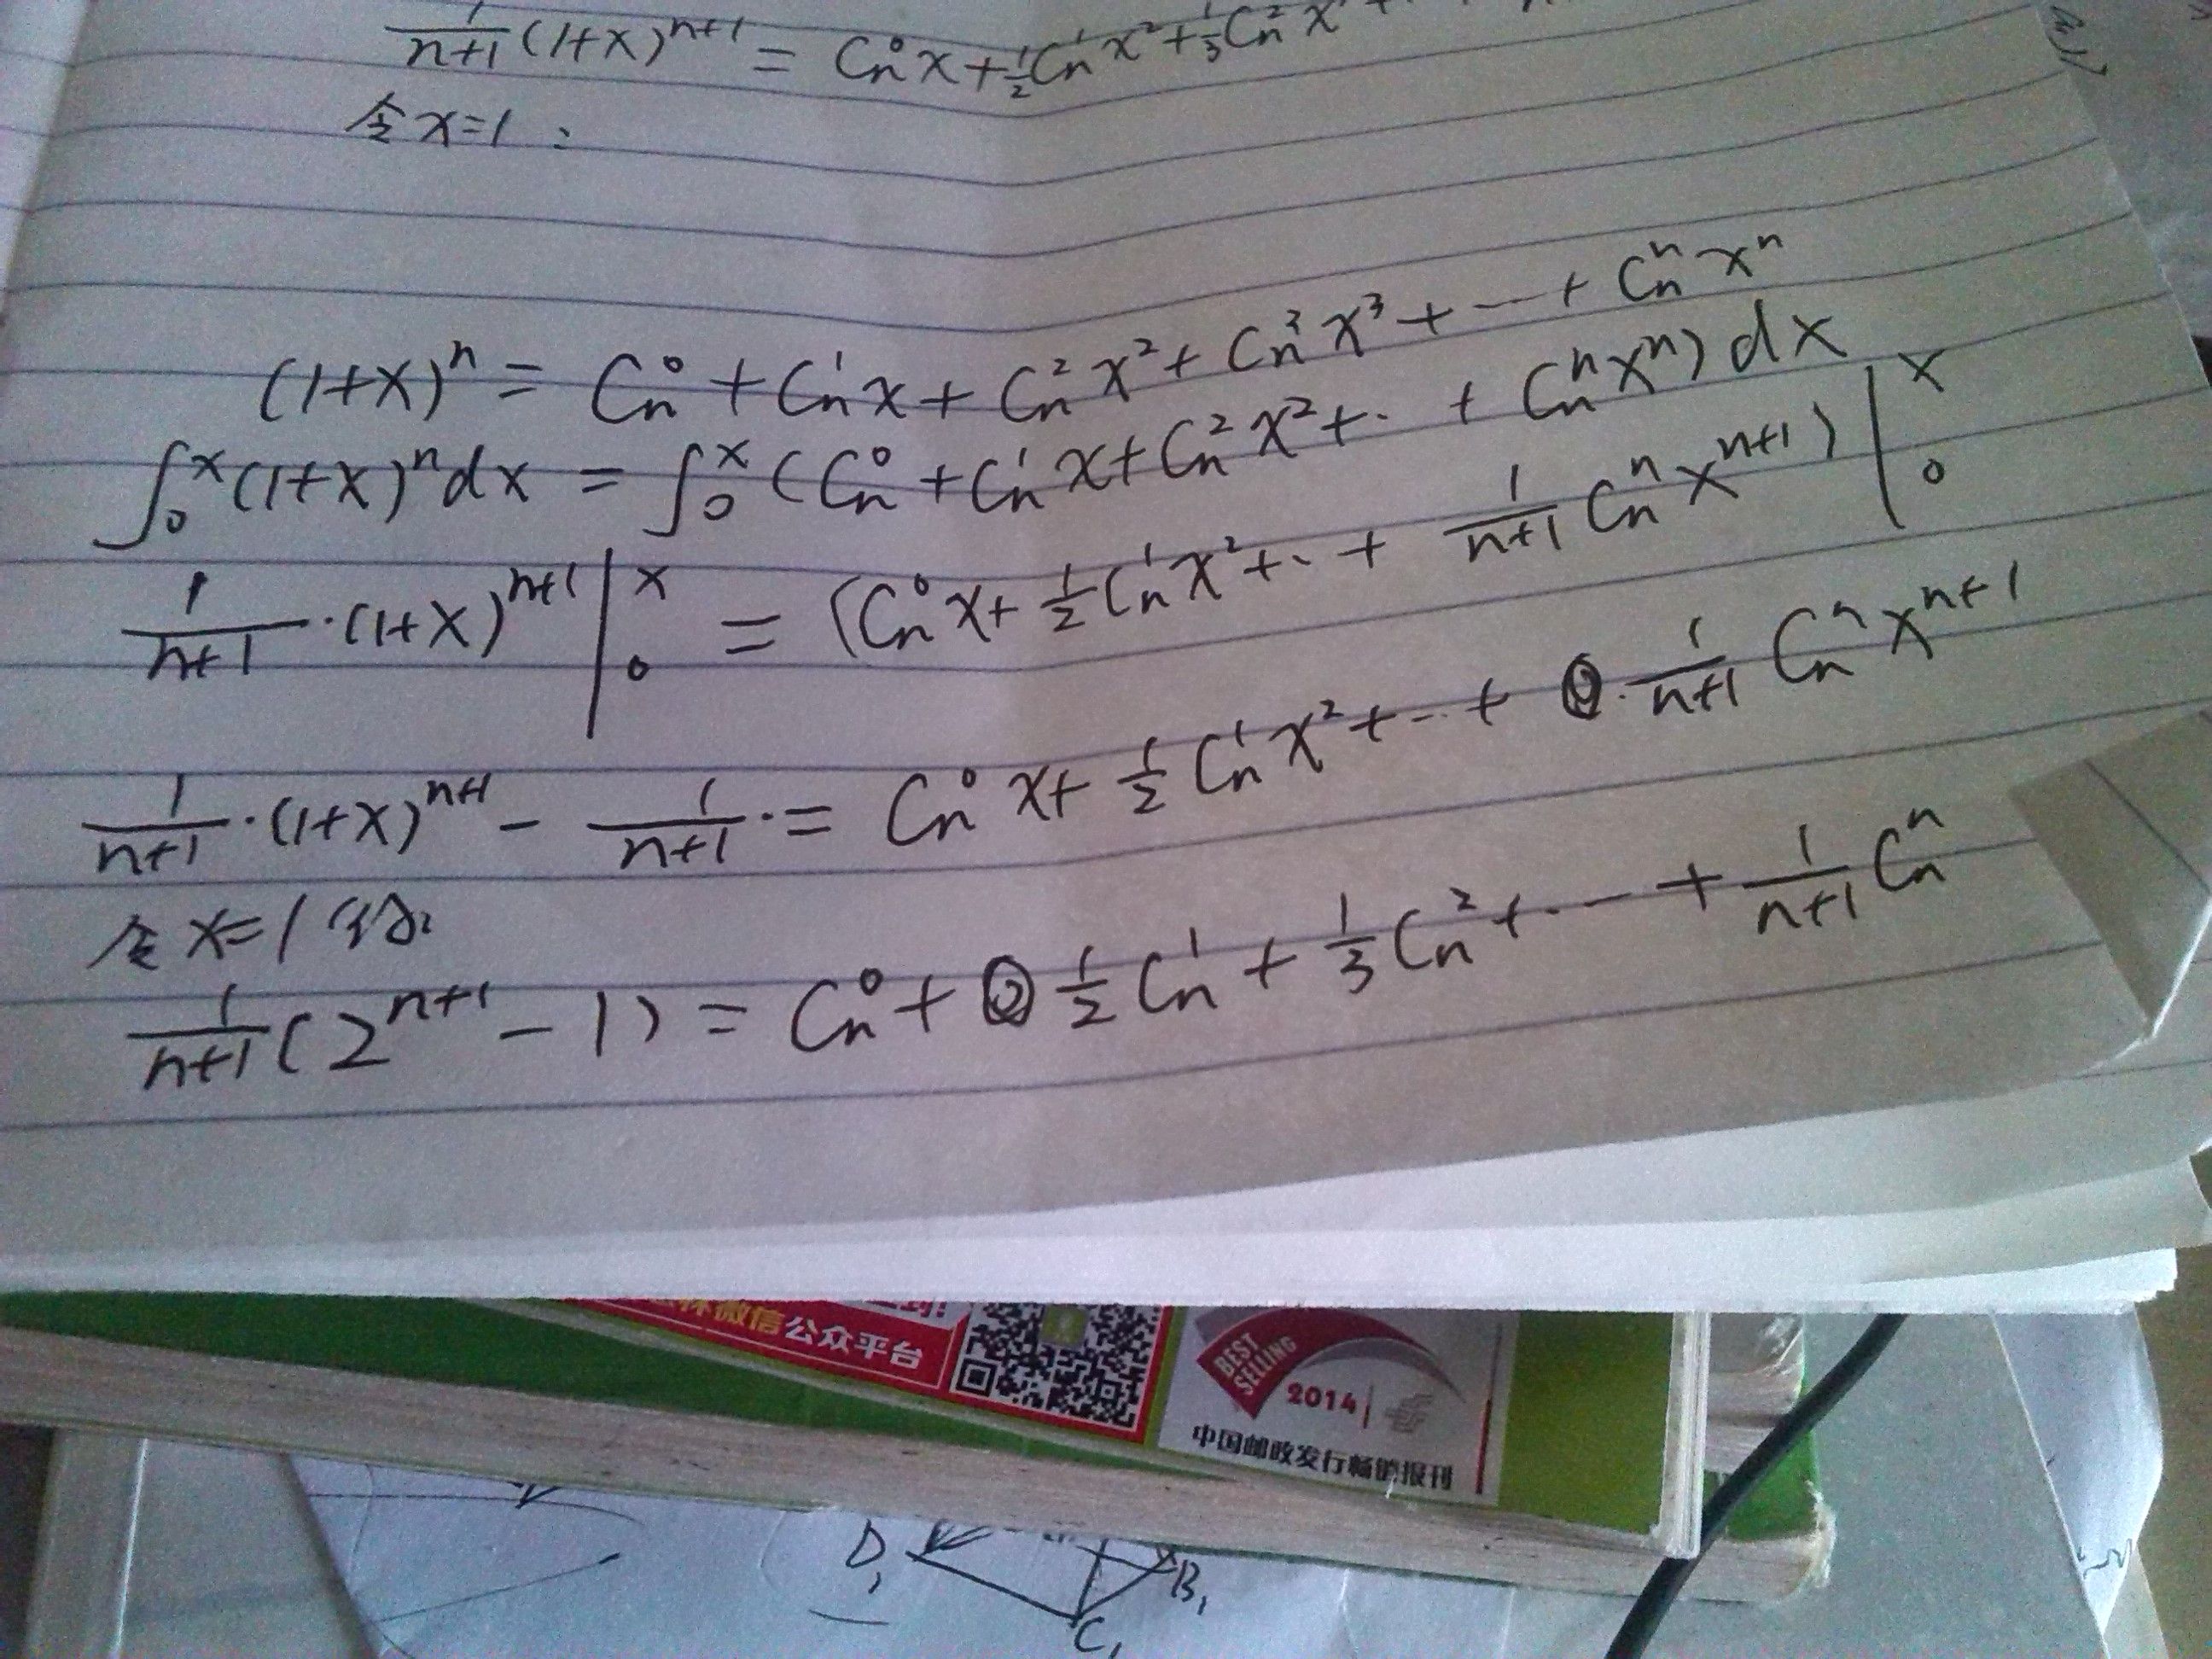 1/(n+1) (1+x)^{n+1} = C_n^0 x + 1/2 C_n^1 x^2 + 1/3 C_n^2 x
令 x=1:
(1+x)^n = C_n^0 + C_n^1 x + C_n^2 x^2 + C_n^3 x^3 + ··· + C_n^n x^n
∫_0^x (1+x)^n dx = ∫_0^x (C_n^0 + C_n^1 x + C_n^2 x^2 + ·· + C_n^n x^n) dx
1/(n+1) ·(1+x)^{n+1} |_0^x = (C_n^0 x + 1/2 C_n^1 x^2 + ·· + 1/(n+1) C_n^n x^{n+1}) |_0^x
1/(n+1) ·(1+x)^{n+1} - 1/(n+1) · = C_n^0 x + 1/2 C_n^1 x^2 + ··· + · 1/(n+1) C_n^n x^{n+1}
令 x=1 得:
1/(n+1) (2^{n+1} - 1) = C_n^0 + 1/2 C_n^1 + 1/3 C_n^2 + ··· + 1/(n+1) C_n^n
微信公众平台
BEST
SELLING
2014
中国邮政发行畅销报刊
D_1
B_1
C_1